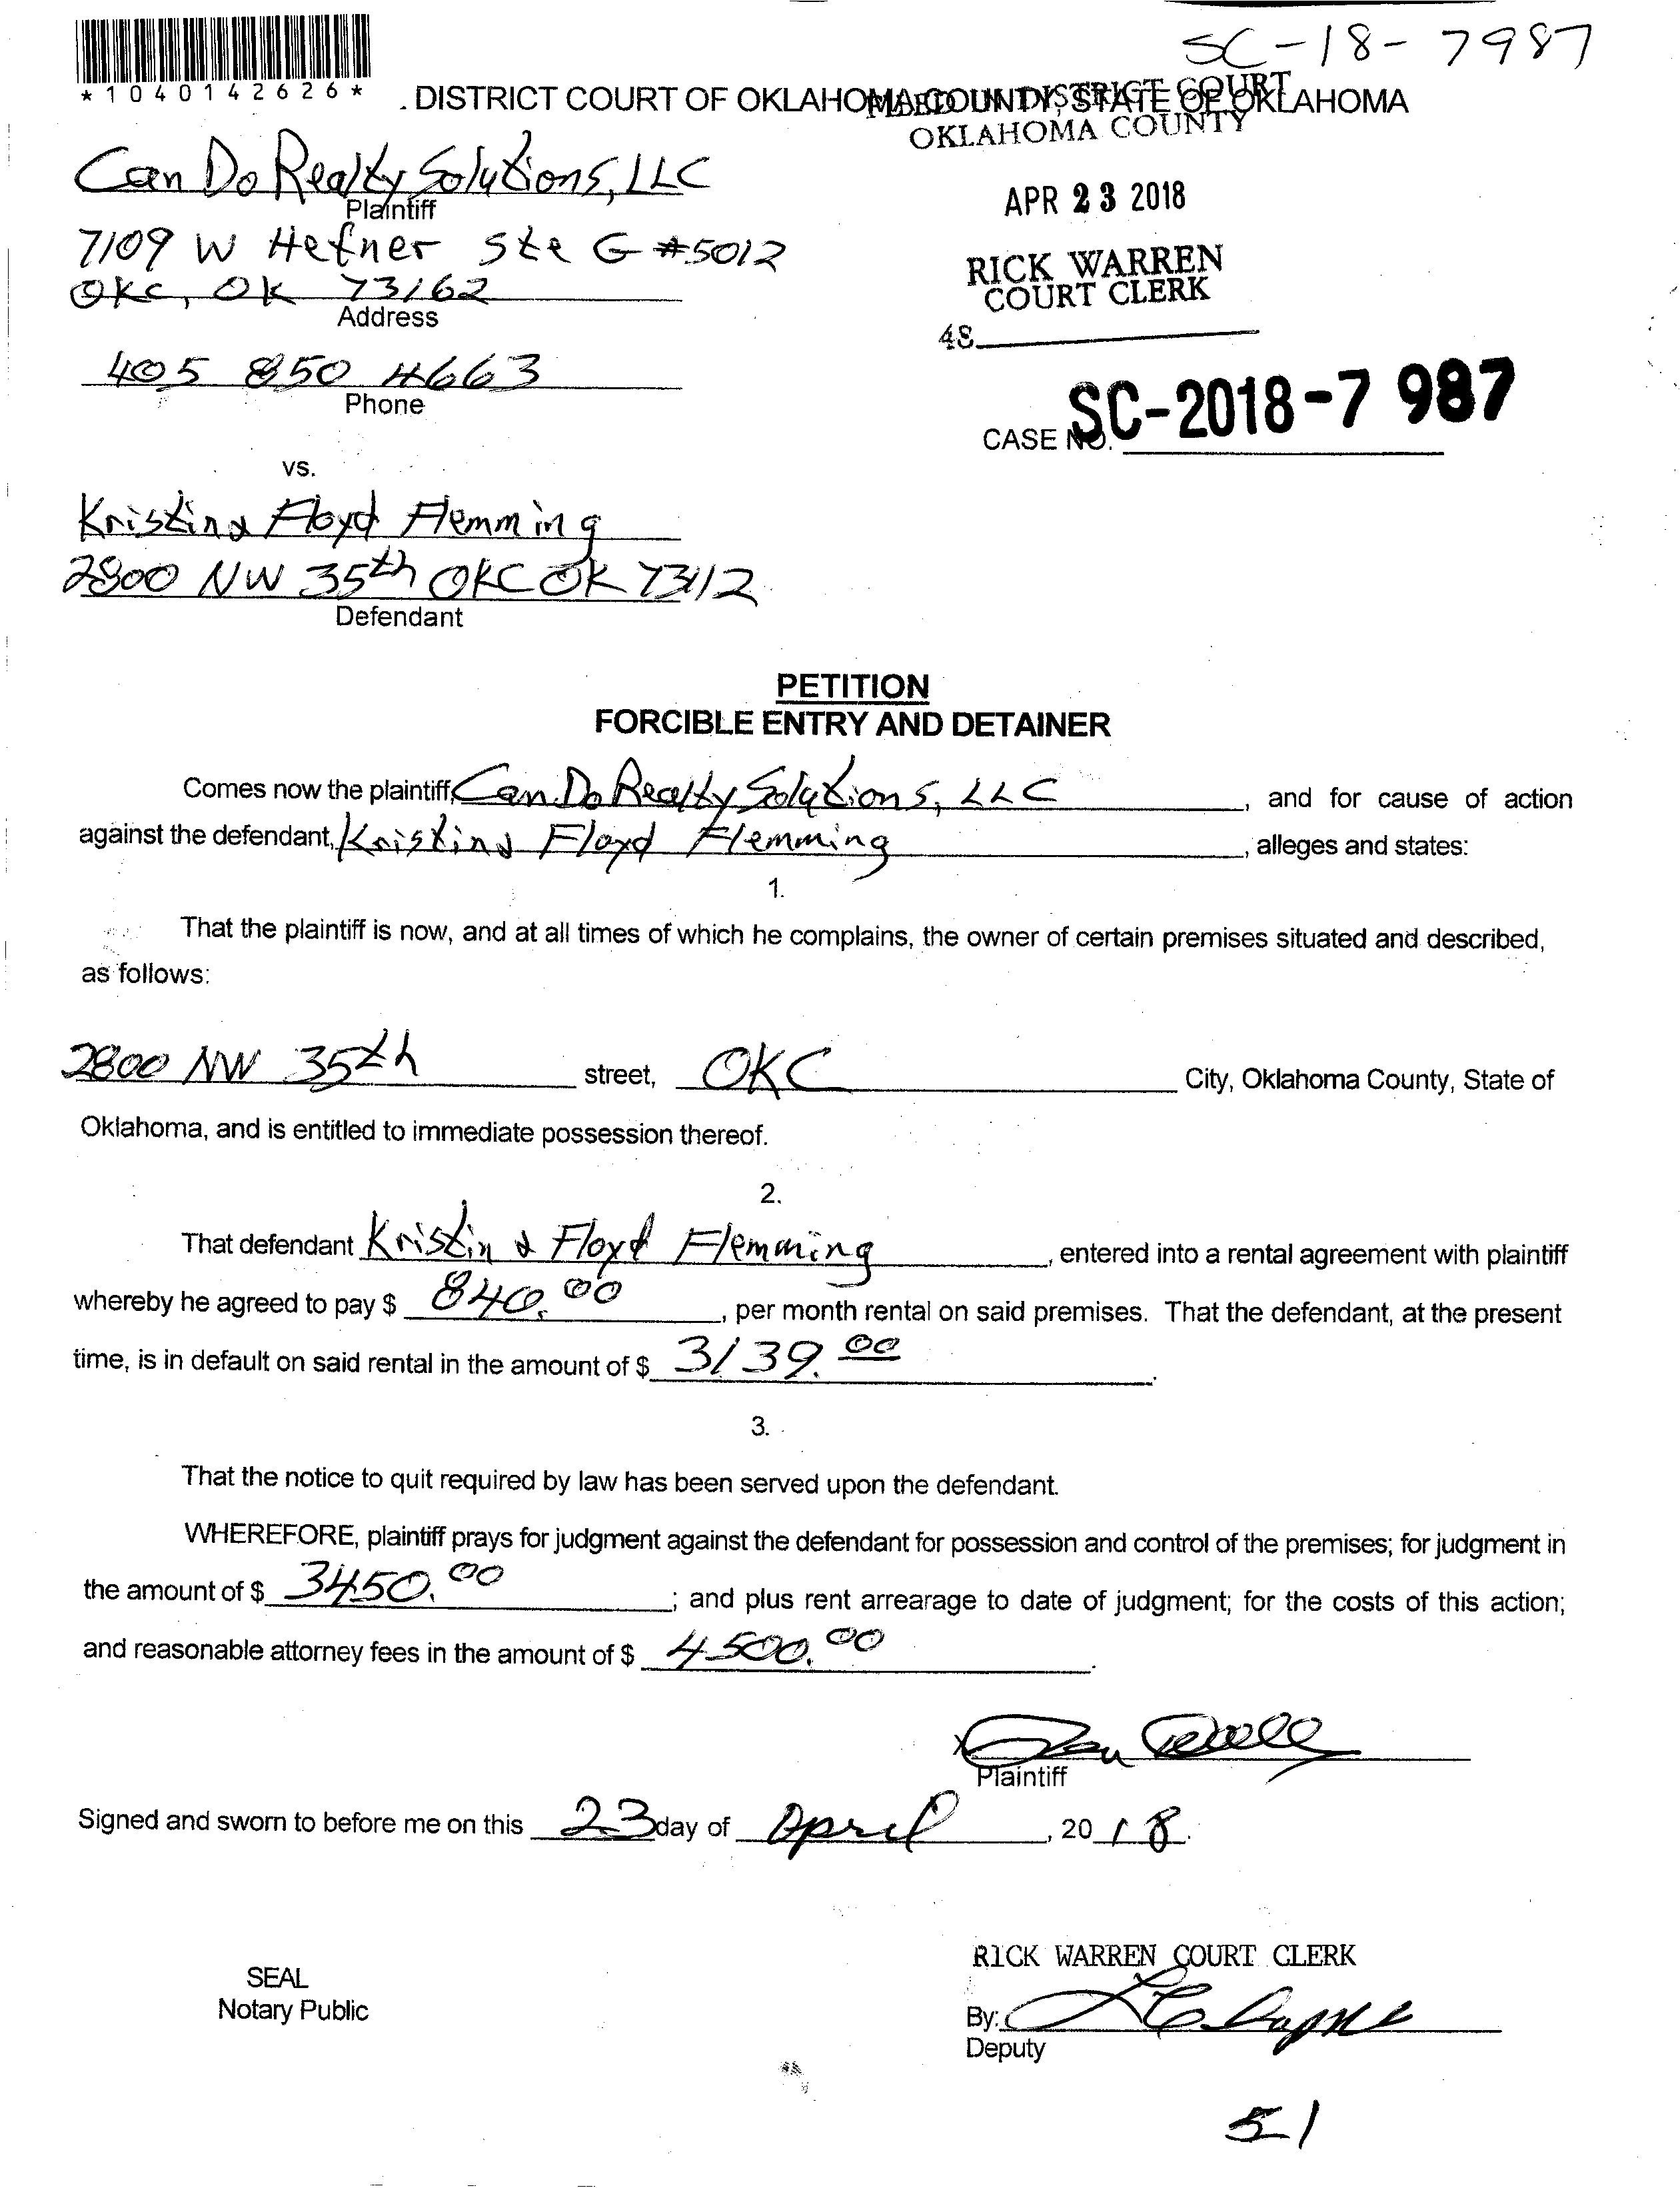 SC-18-7987
*1040142626*
. DISTRICT COURT OF OKLAHOMA COUNTY, STATE OF OKLAHOMA
FILED IN DISTRICT COURT
OKLAHOMA COUNTY
Can Do Realty Solutions, LLC
Plaintiff
APR 23 2018
7109 W Hefner Ste G #5012
RICK WARREN
COURT CLERK
OKC, OK 73162
Address
48
405 850 4663
Phone
CASE NO. SC-2018-7987
vs.
Kristin & Floyd Flemming
2800 NW 35th OKC OK 73112
Defendant
PETITION
FORCIBLE ENTRY AND DETAINER
Comes now the plaintiff, Can Do Realty Solutions, LLC, and for cause of action
against the defendant, Kristin & Floyd Flemming, alleges and states:
1.
That the plaintiff is now, and at all times of which he complains, the owner of certain premises situated and described,
as follows:
2800 NW 35th street, OKC City, Oklahoma County, State of
Oklahoma, and is entitled to immediate possession thereof.
2.
That defendant Kristin & Floyd Flemming, entered into a rental agreement with plaintiff
whereby he agreed to pay $ 840.00, per month rental on said premises. That the defendant, at the present
time, is in default on said rental in the amount of $ 3139.00.
3.
That the notice to quit required by law has been served upon the defendant.
WHEREFORE, plaintiff prays for judgment against the defendant for possession and control of the premises; for judgment in
the amount of $ 3450.00; and plus rent arrearage to date of judgment; for the costs of this action;
and reasonable attorney fees in the amount of $ 4500.00.
X
Plaintiff
Signed and sworn to before me on this 23 day of April, 2018.
RICK WARREN COURT CLERK
SEAL
Notary Public
By:
Deputy
51